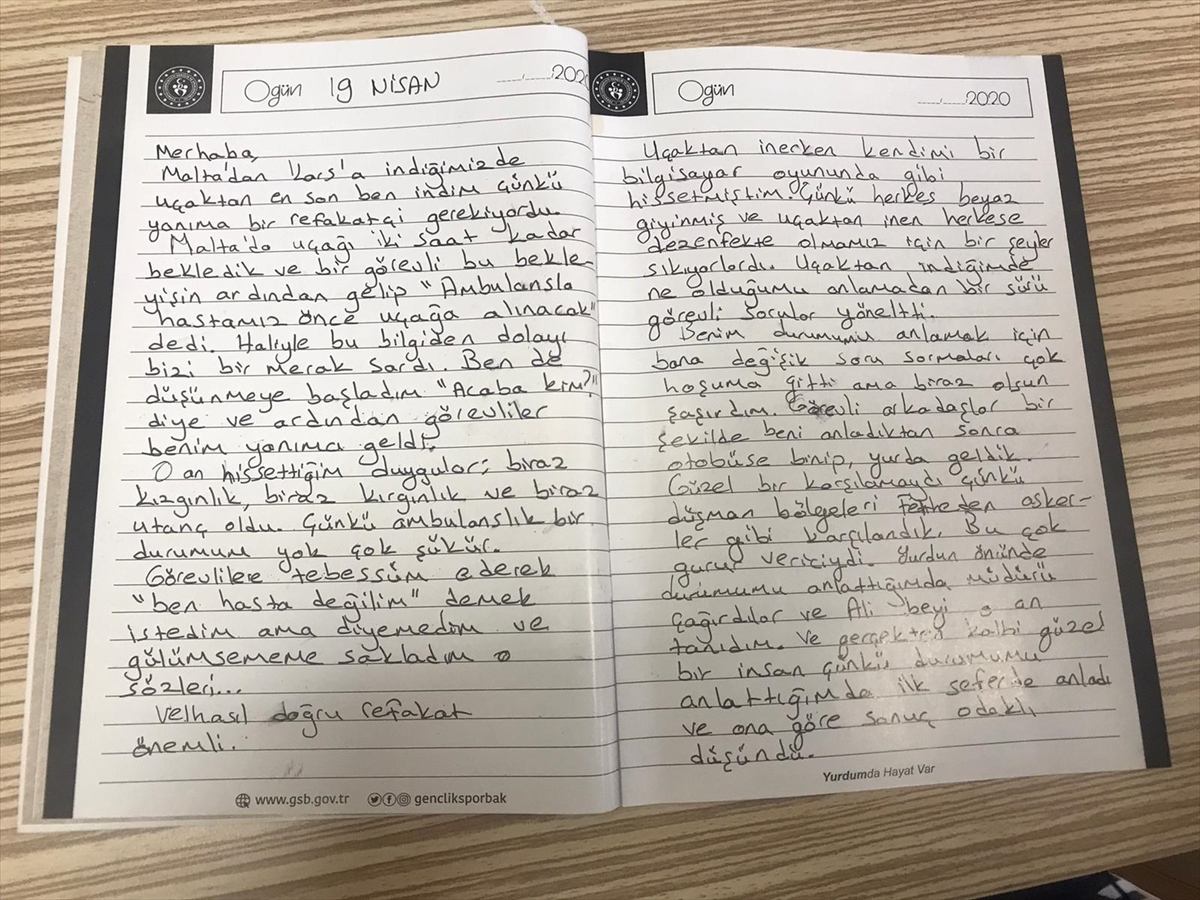 Ogün 19 NİSAN ....../....../2020
Merhaba,
Malta'dan Kars'a indiğimizde
uçaktan en son ben indim çünkü
yanıma bir refakatçi gerekiyordu.
Malta'da uçağı iki saat kadar
bekledik ve bir görevli bu bekle-
yişin ardından gelip "Ambulansla
hastamız önce uçağa alınacak"
dedi. Haliyle bu bilgiden dolayı
bizi bir merak sardı. Ben de
düşünmeye başladım "Acaba kim?"
diye ve ardından görevliler
benim yanıma geldi.
O an hissettiğim duygular; biraz
kızgınlık, biraz kırgınlık ve biraz
utanç oldu. Çünkü ambulanslık bir
durumum yok çok şükür.
Görevlilere tebessüm ederek
"ben hasta değilim" demek
istedim ama diyemedim ve
gülümsememe sakladım o
sözleri...
Velhasıl doğru refakat
önemli.
www.gsb.gov.tr gencliksporbak
Ogün ....../....../2020
Uçaktan inerken kendimi bir
bilgisayar oyununda gibi
hissetmiştim. Çünkü herkes beyaz
giyinmiş ve uçaktan inen herkese
dezenfekte olmamız için bir şeyler
sıkıyorlardı. Uçaktan indiğimde
ne olduğumu anlamadan bir sürü
görevli sorular yöneltti.
Benim durumumu anlamak için
bana değişik soru sormaları çok
hoşuma gitti ama biraz olsun
şaşırdım. Görevli arkadaşlar bir
şekilde beni anladıktan sonra
otobüse binip, yurda geldik.
Güzel bir karşılamaydı çünkü
düşman bölgeleri fetheden asker-
ler gibi karşılandık. Bu çok
gurur vericiydi. Yurdun önünde
durumumu anlattığımda müdürü
çağırdılar ve Ali beyi o an
tanıdım. Ve gerçekten kalbi güzel
bir insan çünkü durumumu
anlattığımda ilk seferde anladı
ve ona göre sonuç odaklı
düşündü.
Yurdumda Hayat Var